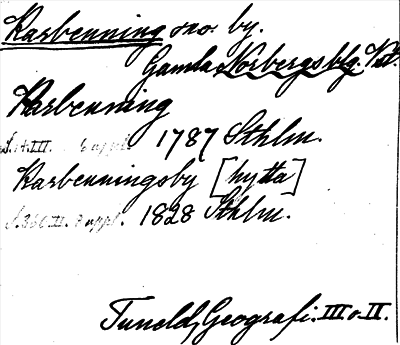 Karbenning sno. by.
Gamla Norbergs blg. Vstl.
Karbenning
S. 14. III. 6 uppl. 1787 Sthlm.
Karbenningsby [hytta]
S. 360 II. 8 uppl. 1828 Sthlm.
Tuneld, Geografi. III o. II.